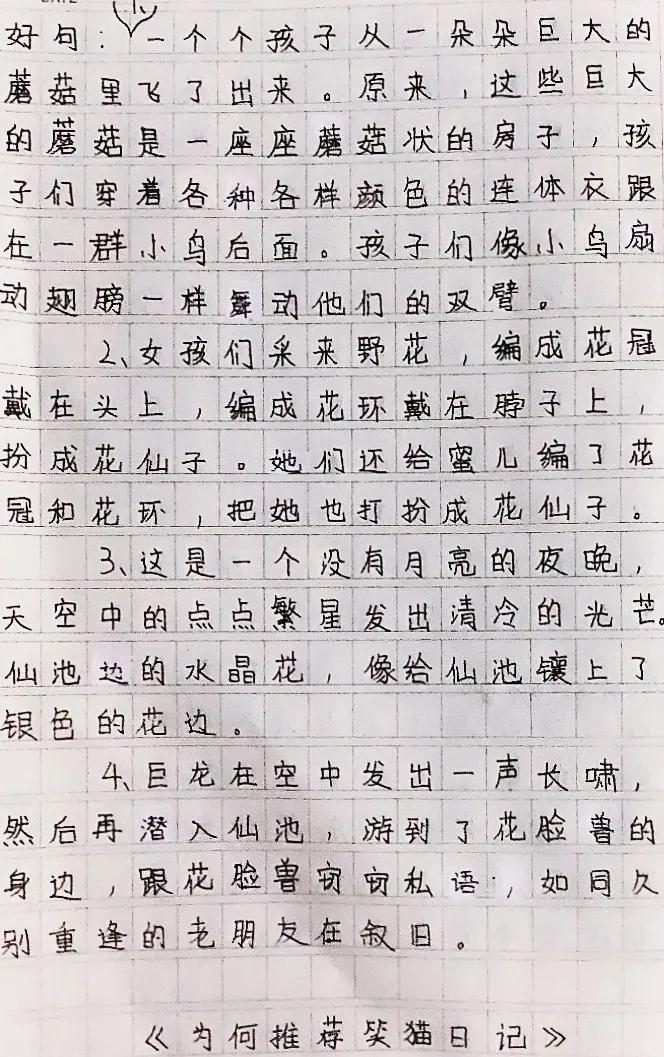 好句：一个个孩子从一朵朵巨大的
蘑菇里飞了出来。原来，这些巨大
的蘑菇是一座座蘑菇状的房子，孩
子们穿着各种各样颜色的连体衣跟
在一群小鸟后面。孩子们像小鸟扇
动翅膀一样舞动他们的双臂。
2、女孩们采来野花，编成花冠
戴在头上，编成花环戴在脖子上，
扮成花仙子。她们还给蜜儿编了花
冠和花环，把她也打扮成花仙子。
3、这是一个没有月亮的夜晚，
天空中的点点繁星发出清冷的光芒。
仙池边的水晶花，像给仙池镶上了
银色的花边。
4、巨龙在空中发出一声长啸，
然后再潜入仙池，游到了花脸兽的
身边，跟花脸兽窃窃私语，如同久
别重逢的老朋友在叙旧。
《为何推荐笑猫日记》